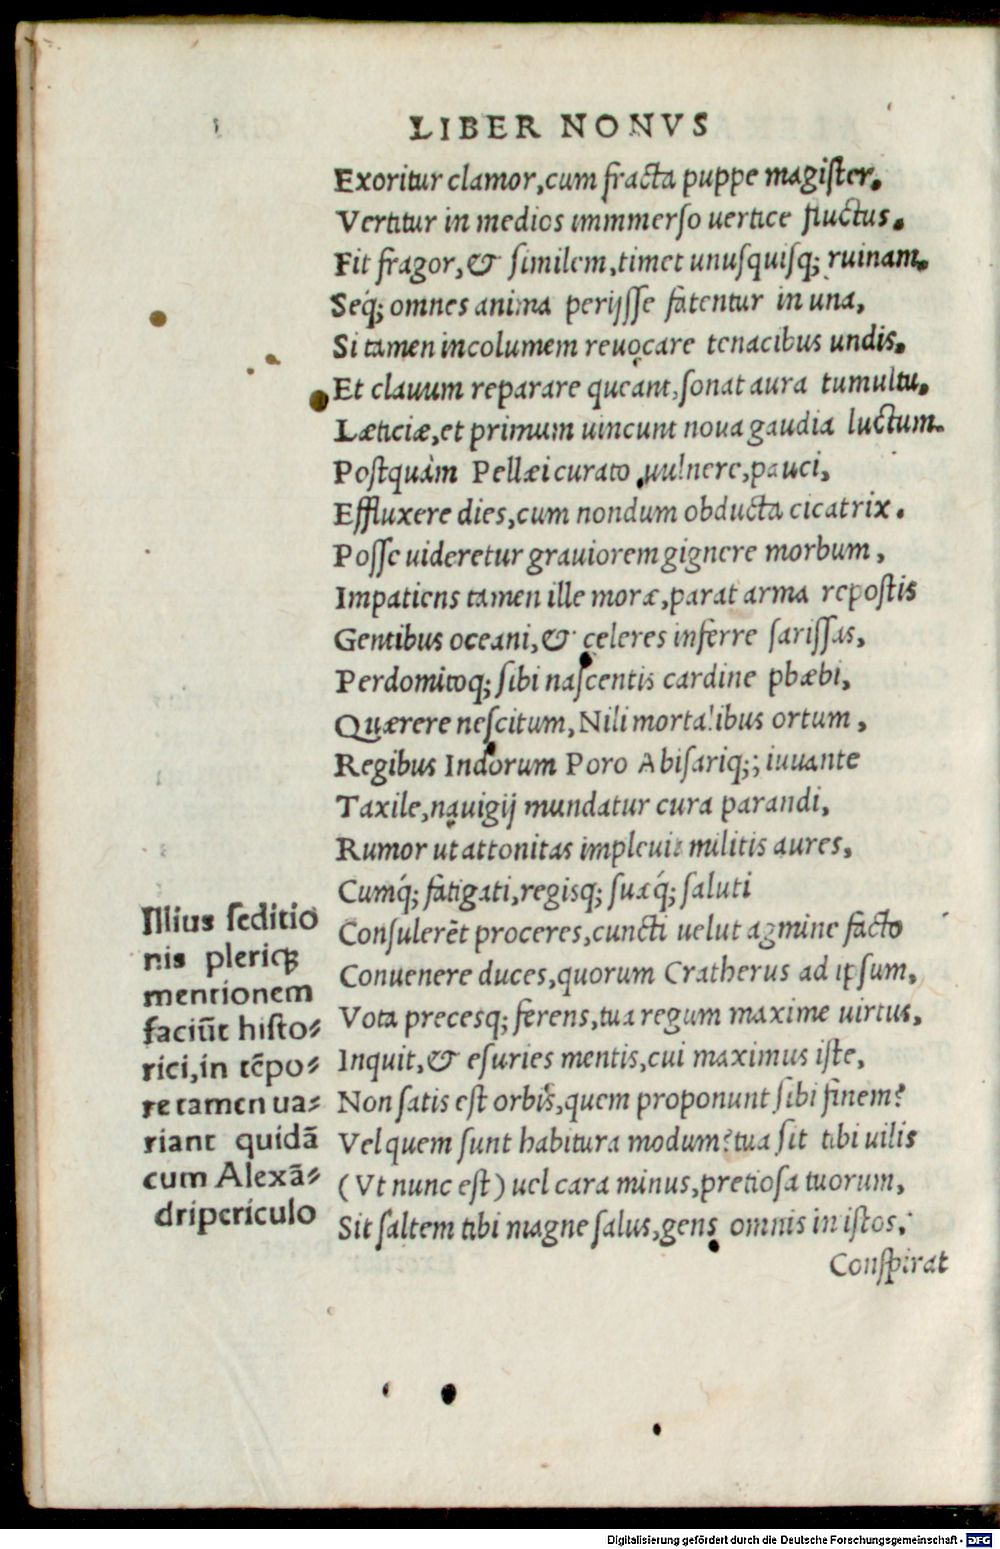 LIBER NONVS
Exoritur clamor,cum fracta puppe magister.
Vertitur in medios immmerso uertice fluctus.
Fit fragor,& similem,timet unusquisq; ruinam.
Seq́; omnes anima perijsse fatentur in una,
Si tamen incolumem reuocare tenacibus undis.
Et clauum reparare queant,sonat aura tumultu.
Lætitiæ,et primum uincunt noua gaudia luctum.
Postquàm Pellæi curato uulnere,pauci,
Effluxere dies,cum nondum obducta cicatrix.
Posse uideretur grauiorem gignere morbum,
Impatiens tamen ille moræ,parat arma repostis
Gentibus oceani,& celeres inferre sarissas,
Perdomitoq; sibi nascentis cardine phæbi,
Quærere nescitum,Nili mortalibus ortum,
Regibus Indorum Poro Abisariq;; iuuante
Taxile,nauigij mundatur cura parandi,
Rumor ut attonitas impleuit militis aures,
Cumq́; fatigati,regisq; suaq́; saluti
Consulerēt proceres,cuncti uelut agmine facto
Conuenere duces,quorum Cratherus ad ipsum,
Vota precesq; ferens,tua regum maxime uirtus,
Inquit,& esuries mentis,cui maximus iste,
Non satis est orbis,quem proponunt sibi finem?
Vel quem sunt habitura modum?tua sit tibi uilis
(Vt nunc est) uel cara minus,pretiosa tuorum,
Sit saltem tibi magne salus,gens omnis in istos.
Conspirat
Illius seditio
nis pleriq;
mentionem
faciūt histo-
rici,in tēpo-
re tamen ua-
riant quidā
cum Alexā-
dri periculo
Digitalisierung gefördert durch die Deutsche Forschungsgemeinschaft - DFG